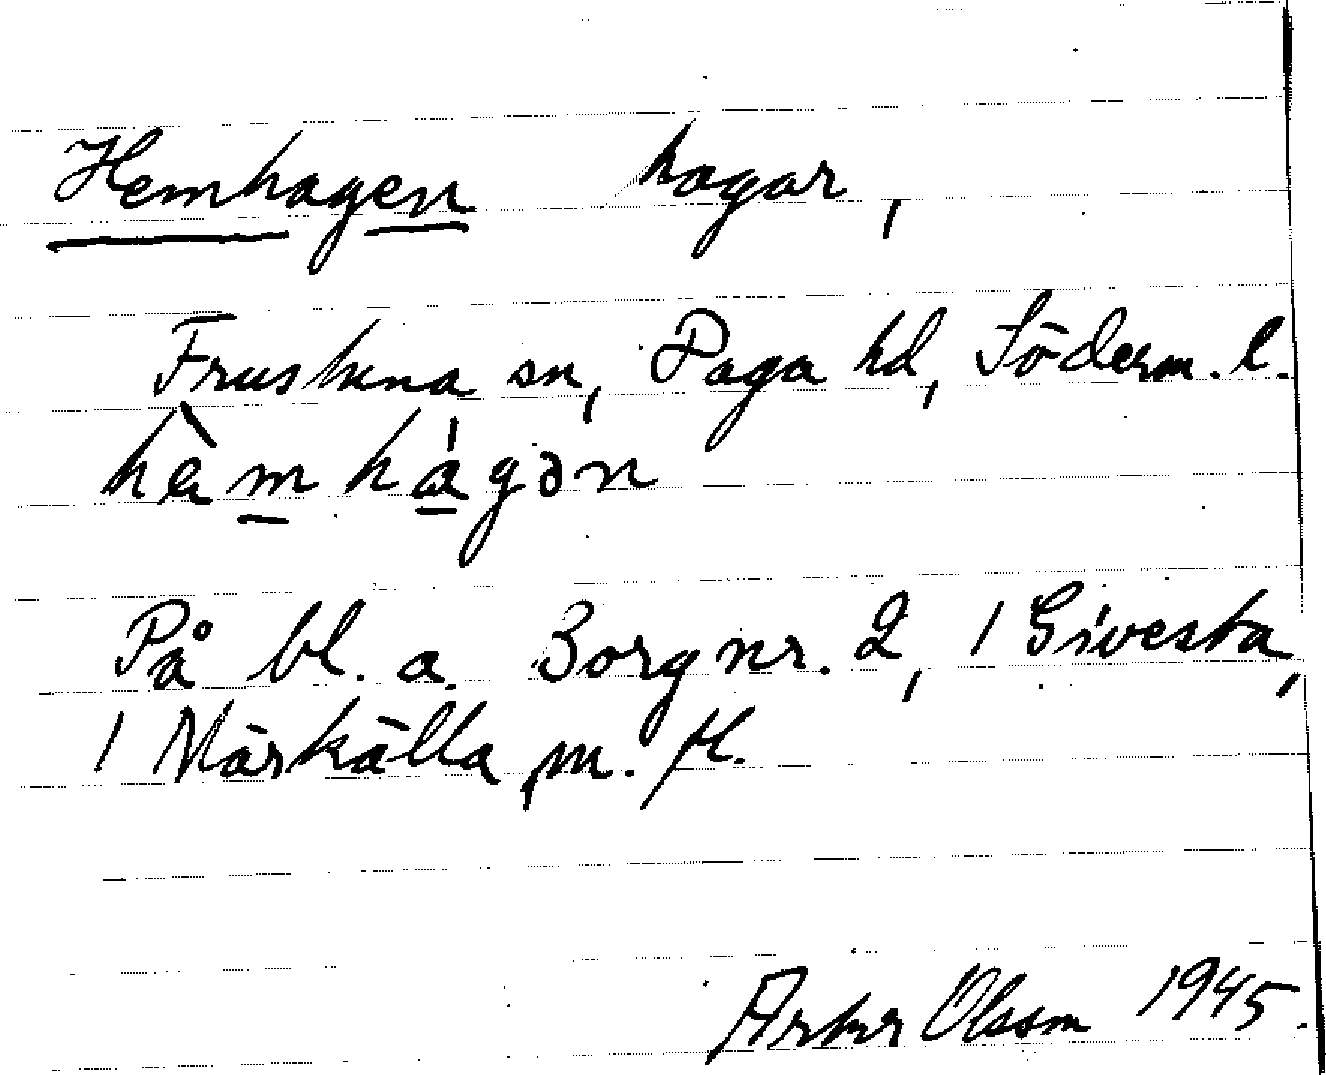 Hemhagen hagar,
Frustuna sn, Daga hd, Söderm. l.
hèmhágən
På bl. a. Borg nr. 2, 1 Sivesta,
1 Märkälla m. fl.
Artur Olsson 1945.